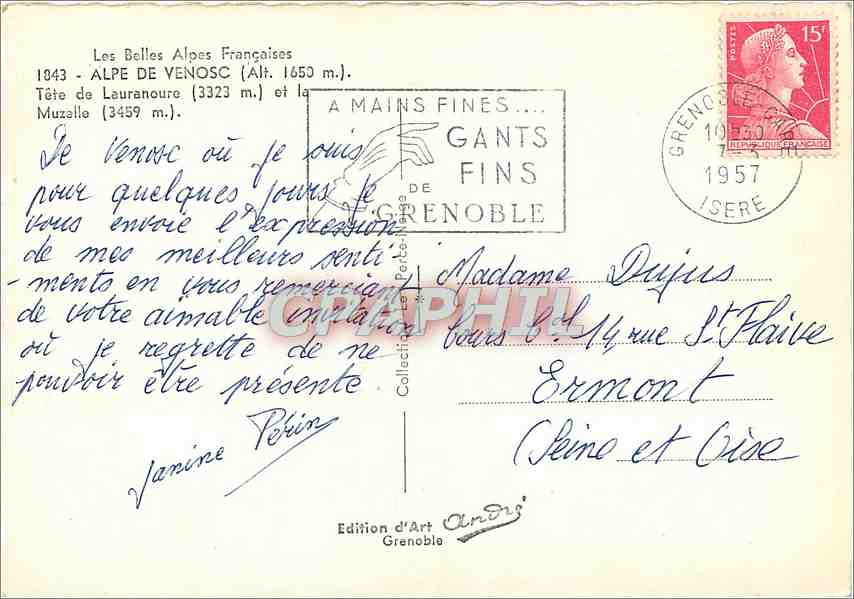 Les Belles Alpes Françaises
1843 - ALPE DE VENOSC (Alt. 1650 m.).
Tête de Lauranoure (3323 m.) et la
Muzelle (3459 m.).
De Venosc où je suis
pour quelques jours je
vous envoie l'expression
de mes meilleurs senti
-ments en vous remerciant
de votre aimable invitation
où je regrette de ne
pouvoir être présente.
Janine Périn
A MAINS FINES....
GANTS
FINS
DE
GRENOBLE
POSTES
15F
REPUBLIQUE FRANÇAISE
GRENOBLE GARE
10H30
1957
ISERE
Madame Dujus
Cours Col 14 rue St Flaive
Ermont
Seine et Oise
Collection Le Perce-Neige
CPAPHIL
Edition d'Art André
Grenoble